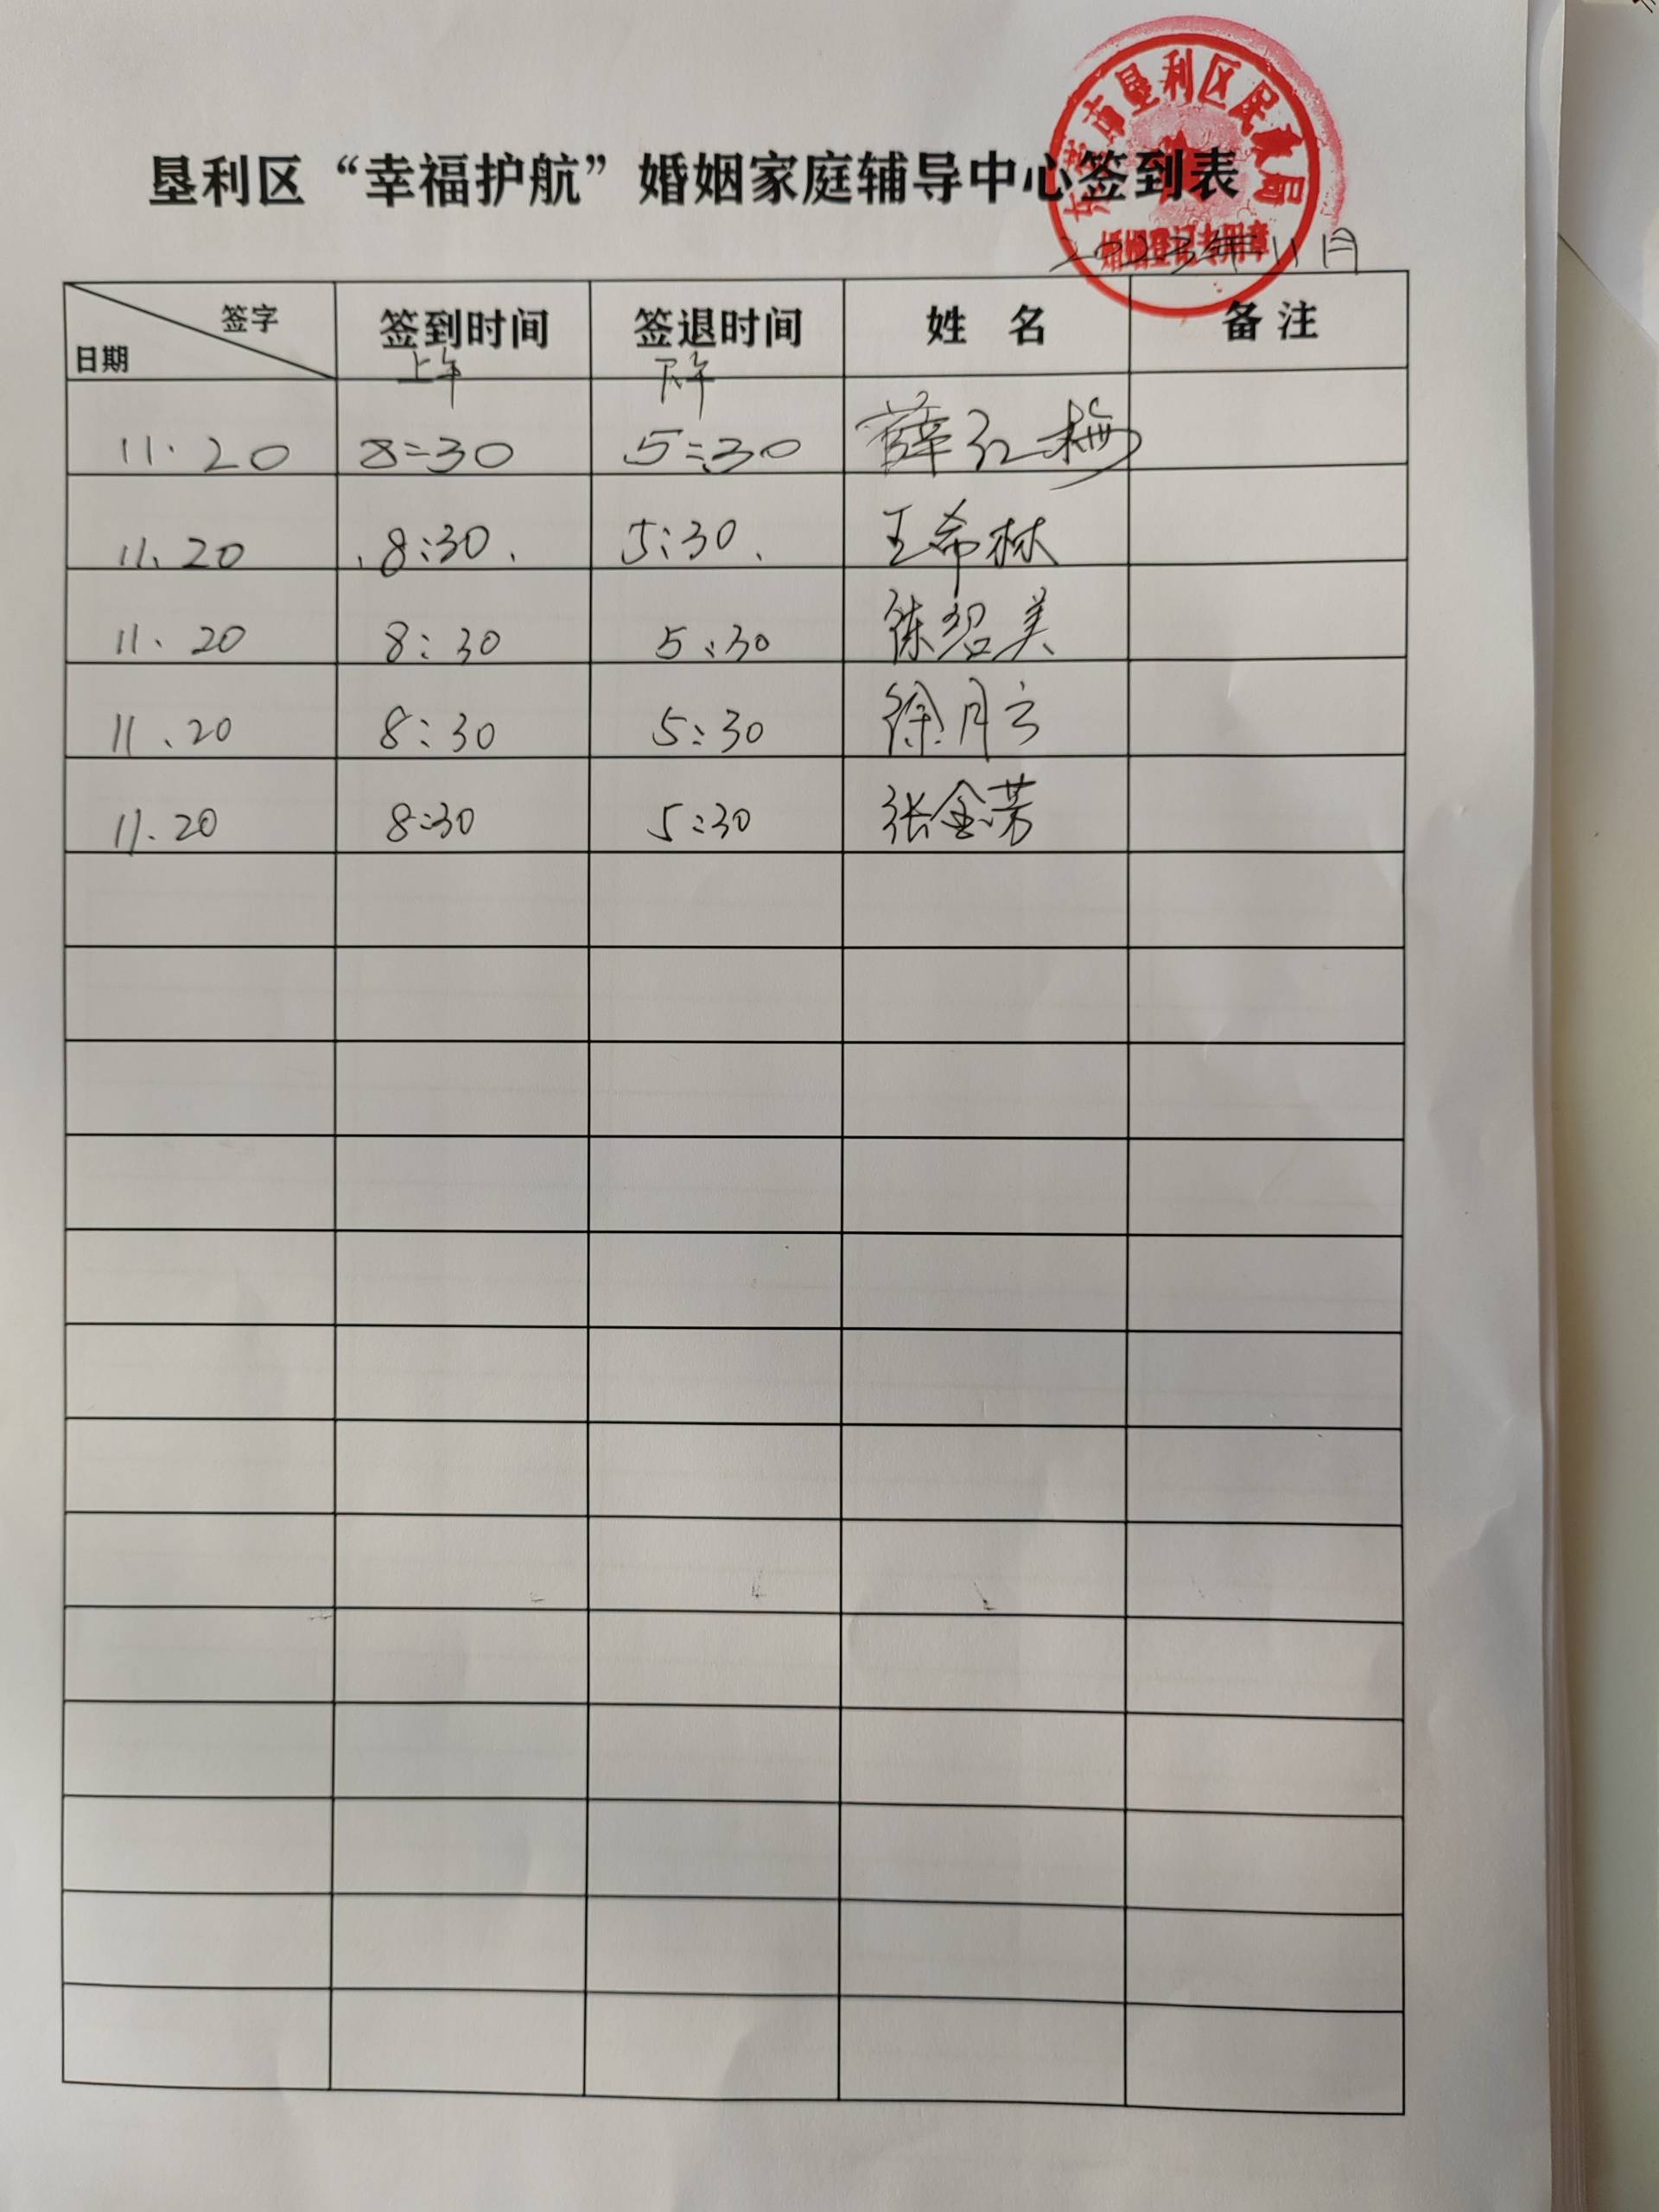 东营市垦利区民政局
婚姻登记专用章
垦利区“幸福护航”婚姻家庭辅导中心签到表
2023年11月
签字 日期 签到时间 签退时间 姓 名 备 注
上午 下午
11.20 8:30 5:30 薛红梅
11.20 8:30 5:30 王希林
11.20 8:30 5:30 陈绍美
11.20 8:30 5:30 徐月云
11.20 8:30 5:30 张金芳